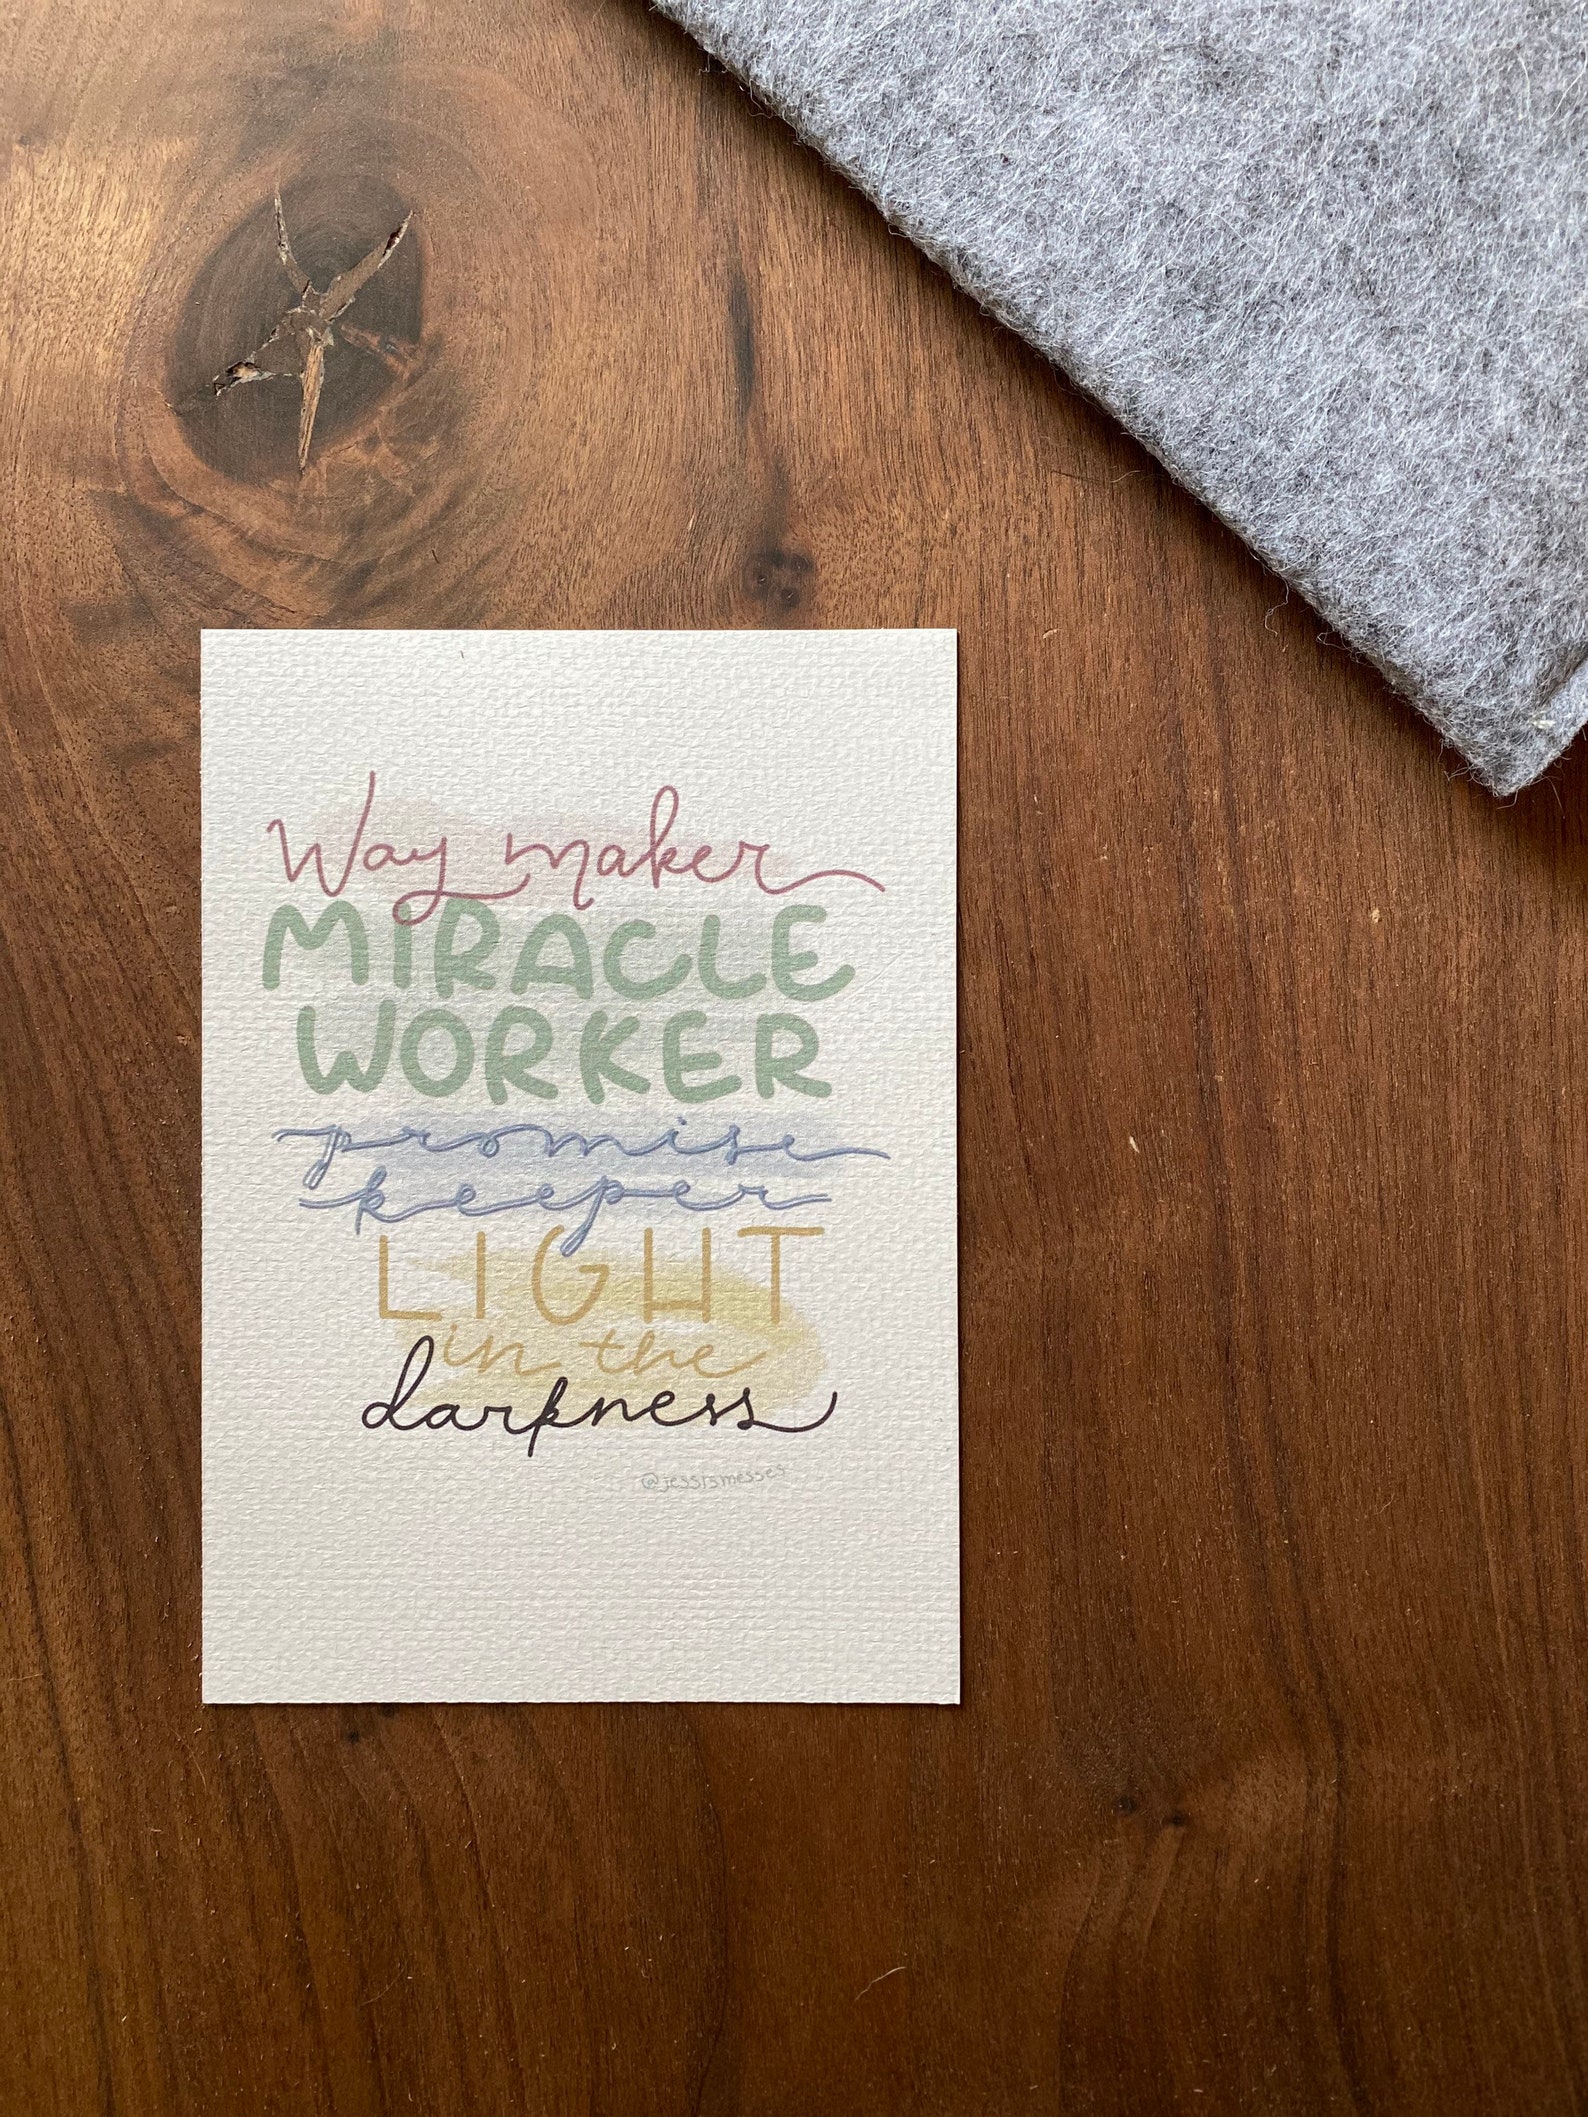 Way maker
MIRACLE
WORKER
promise
keeper
LIGHT
in the
darkness
@jess15messes